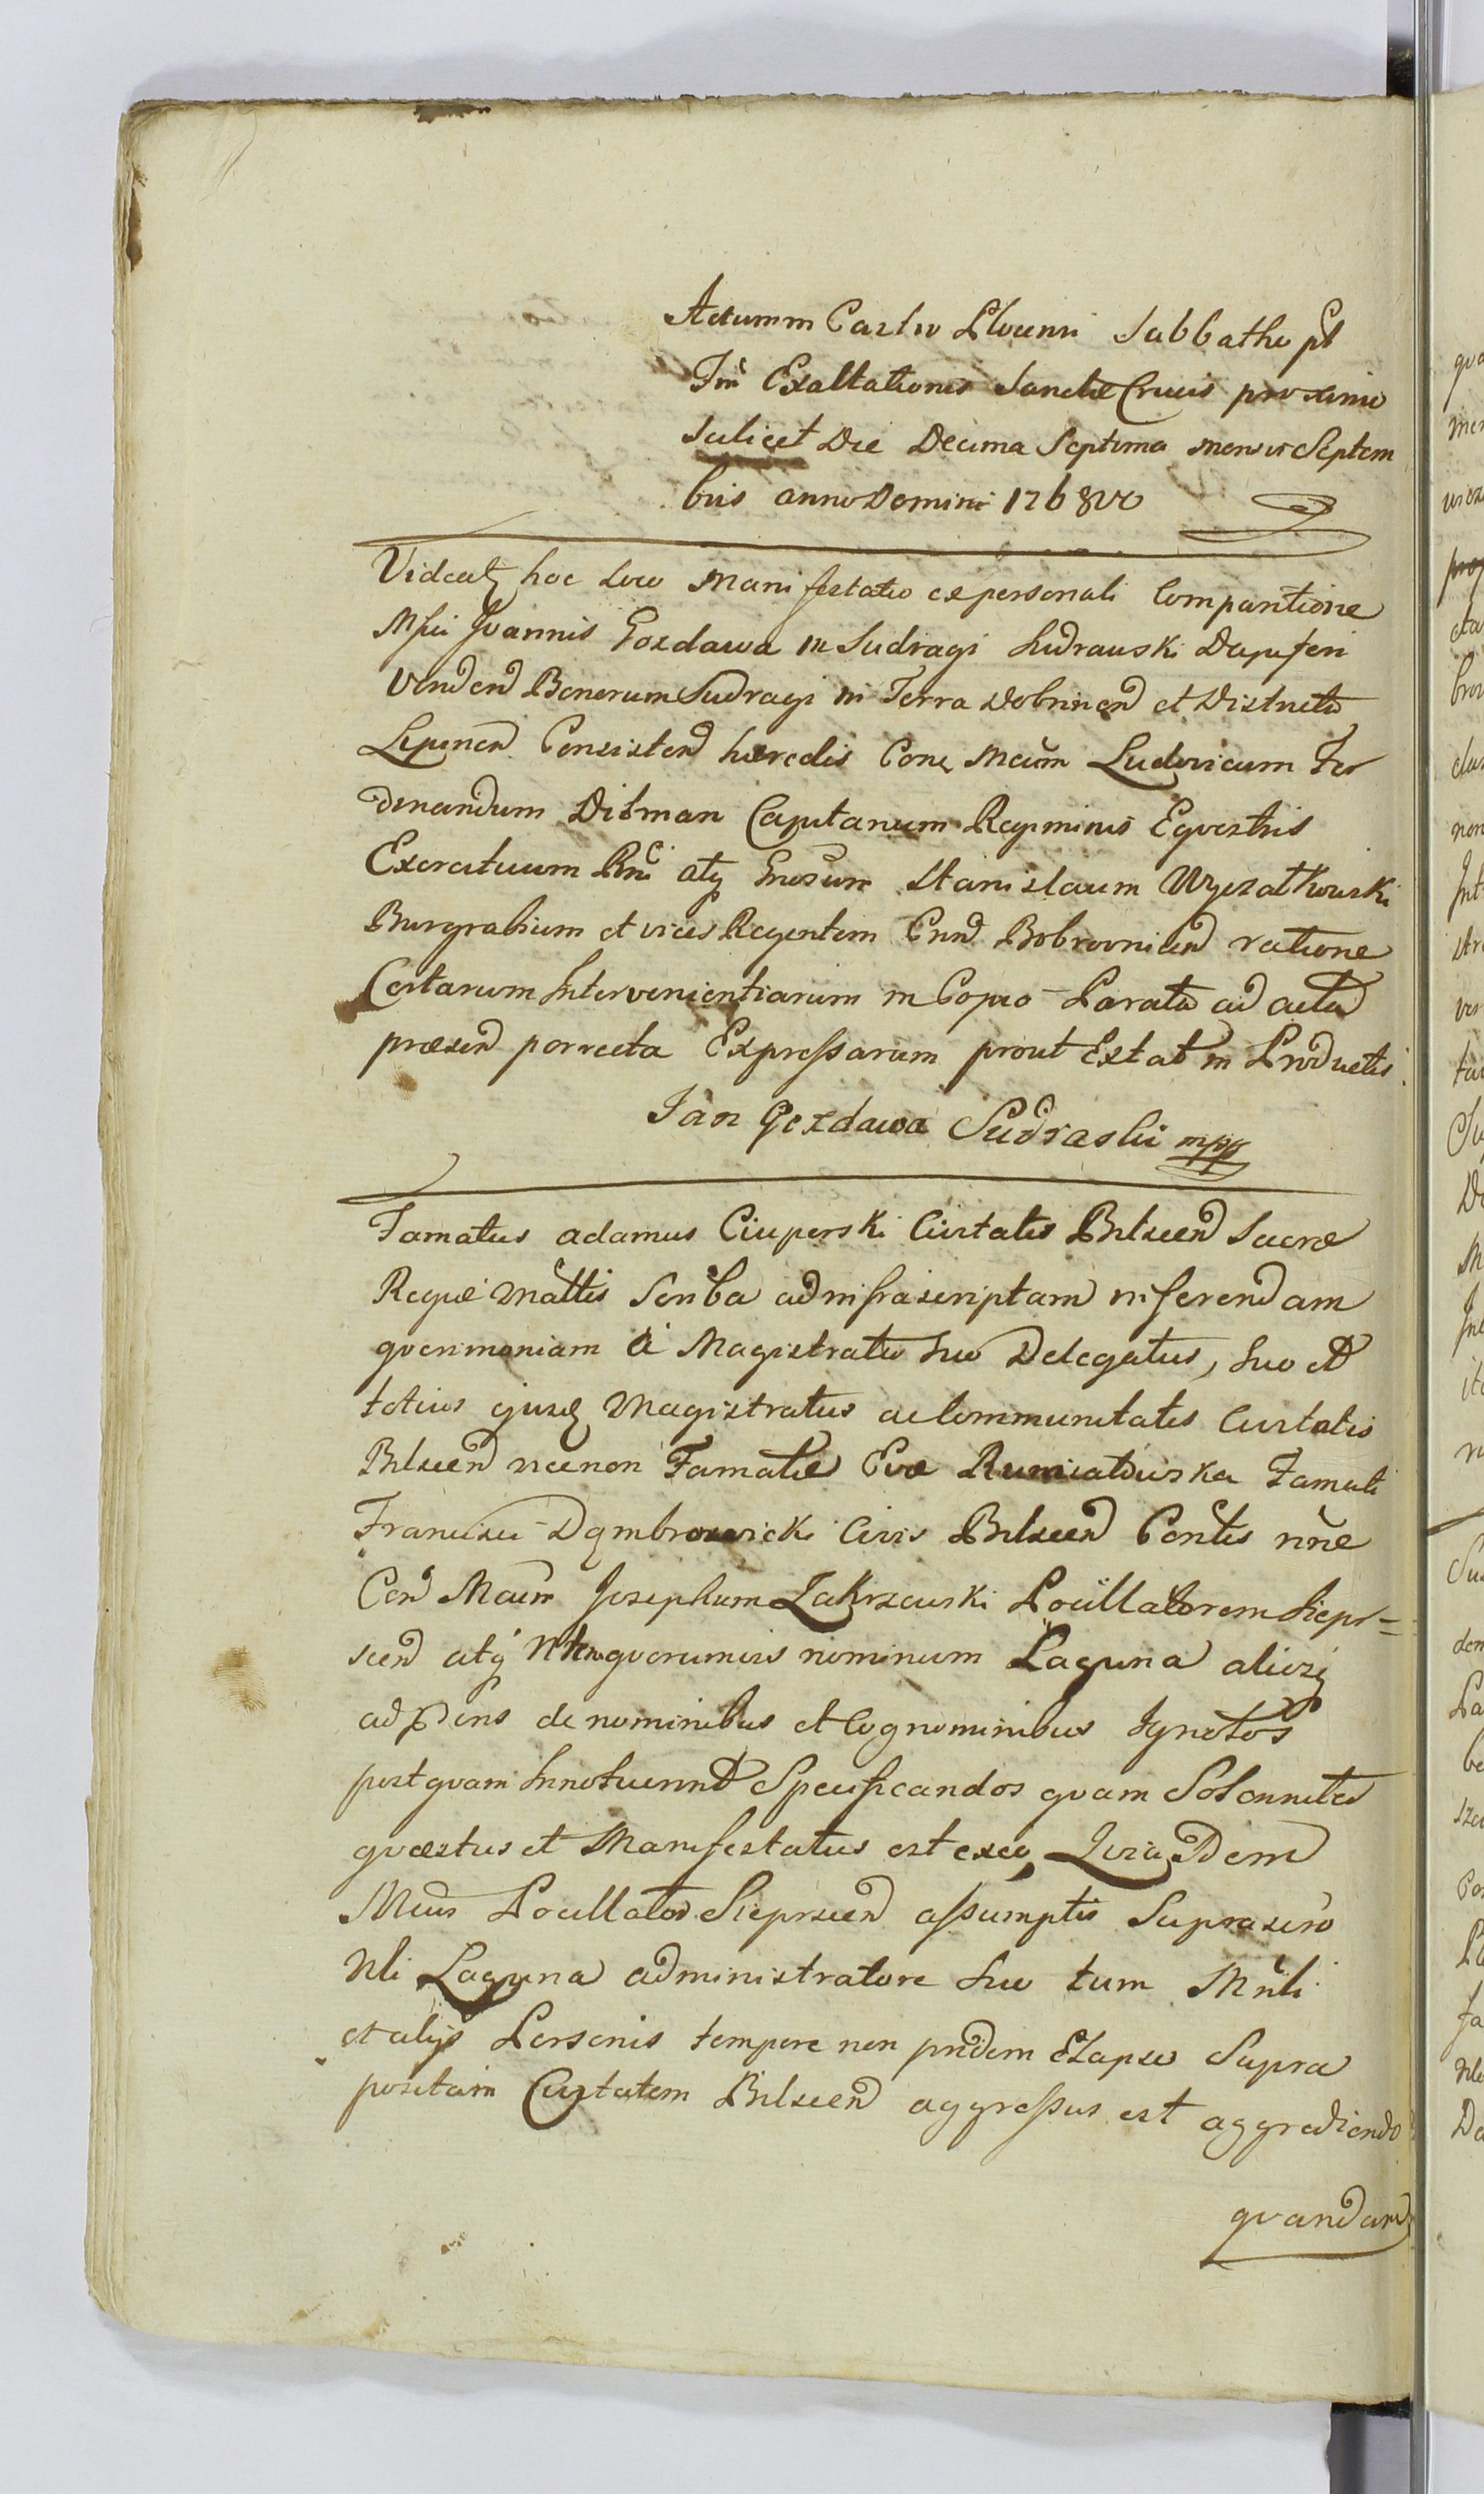 Actum in Castro Plocensi Sabbatho pt
Fm Exaltationis Sanctæ Crucis proximo
Scilicet Die Decima Septima mensis Septem
bris anno Domini 1768vo
Videatq hoc loco Manifestatio ex personali Comparitione
Mfci Joannis Gozdawa in Sudragi Sudrawski Dapiferi
Vendend Bonorum Sudragi in Terra Dobrinen et Districtu
Lipnen Consisten hæredis Cone Mcum Ludovicum Fer
dinandum Ditman Capitaneum Regiminis Equestris
Exercituum Rni atq Gnosum Stanislaum Wyczatkowski
Burgrabium et vices Regentem Cnn Bobrownicen ratione
Certarum Intervenientiarum in Copio Parata ad acta
præsen porrecta Expressarum prout Extat in Productis
Jan Gozdawa Sudraski mpp
Famatus adamus Ciuperski Civitatis Bilscen Sacræ
Regiæ Mattis Scriba ad infrascriptam inferendam
querimoniam à Magistratu Suo Delegatus, Suo et
totius ejusq Magistratus ac Communitatis Civitatis
Bilscen necnon Famatæ Evæ Rumiatowska Famati
Francisci Dąmbrowicki Civis Bilscen Contis nne
Con Mcum Josephum Zakrzewski Pocillatorem Siepr=
scen atq Nlem quorumvis nominum Laguna aliosq
ad præns de nominibus et Cognominibus Ignotos
postquam Innotuerint Specificandos quam Solennite
quæstus et Manifestatus est exeo Quia Idem
Mcus Pocillator Sieprscen assumptis Suprascrò
Nli Laguna administratore Suo tum Mnli
et alijs Personis tempore non pridem Elapso Supra
positam Civitatem Bilscen aggressus est aggrediendo
quandam